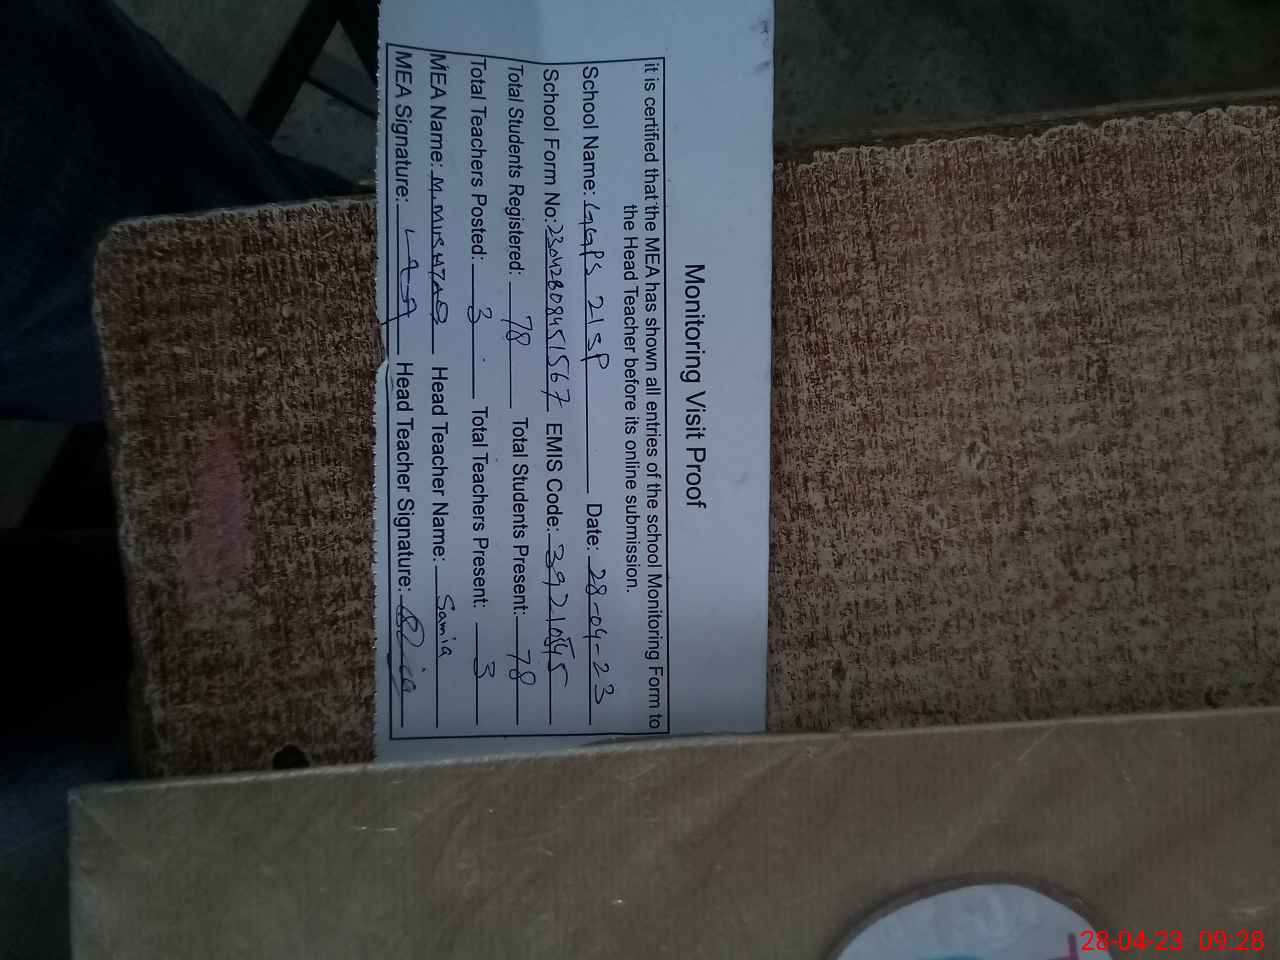 Monitoring Visit Proof
it is certified that the MEA has shown all entries of the school Monitoring Form to
the Head Teacher before its online submission.
School Name: GGPS 21 SP Date: 28-04-23
School Form No: 23042808451567 EMIS Code: 39210845
Total Students Registered: 78 Total Students Present: 78
Total Teachers Posted: 3 Total Teachers Present: 3
MEA Name: M.MUSHTAQ Head Teacher Name: Samia
MEA Signature: Head Teacher Signature:
28-04-23 09:28